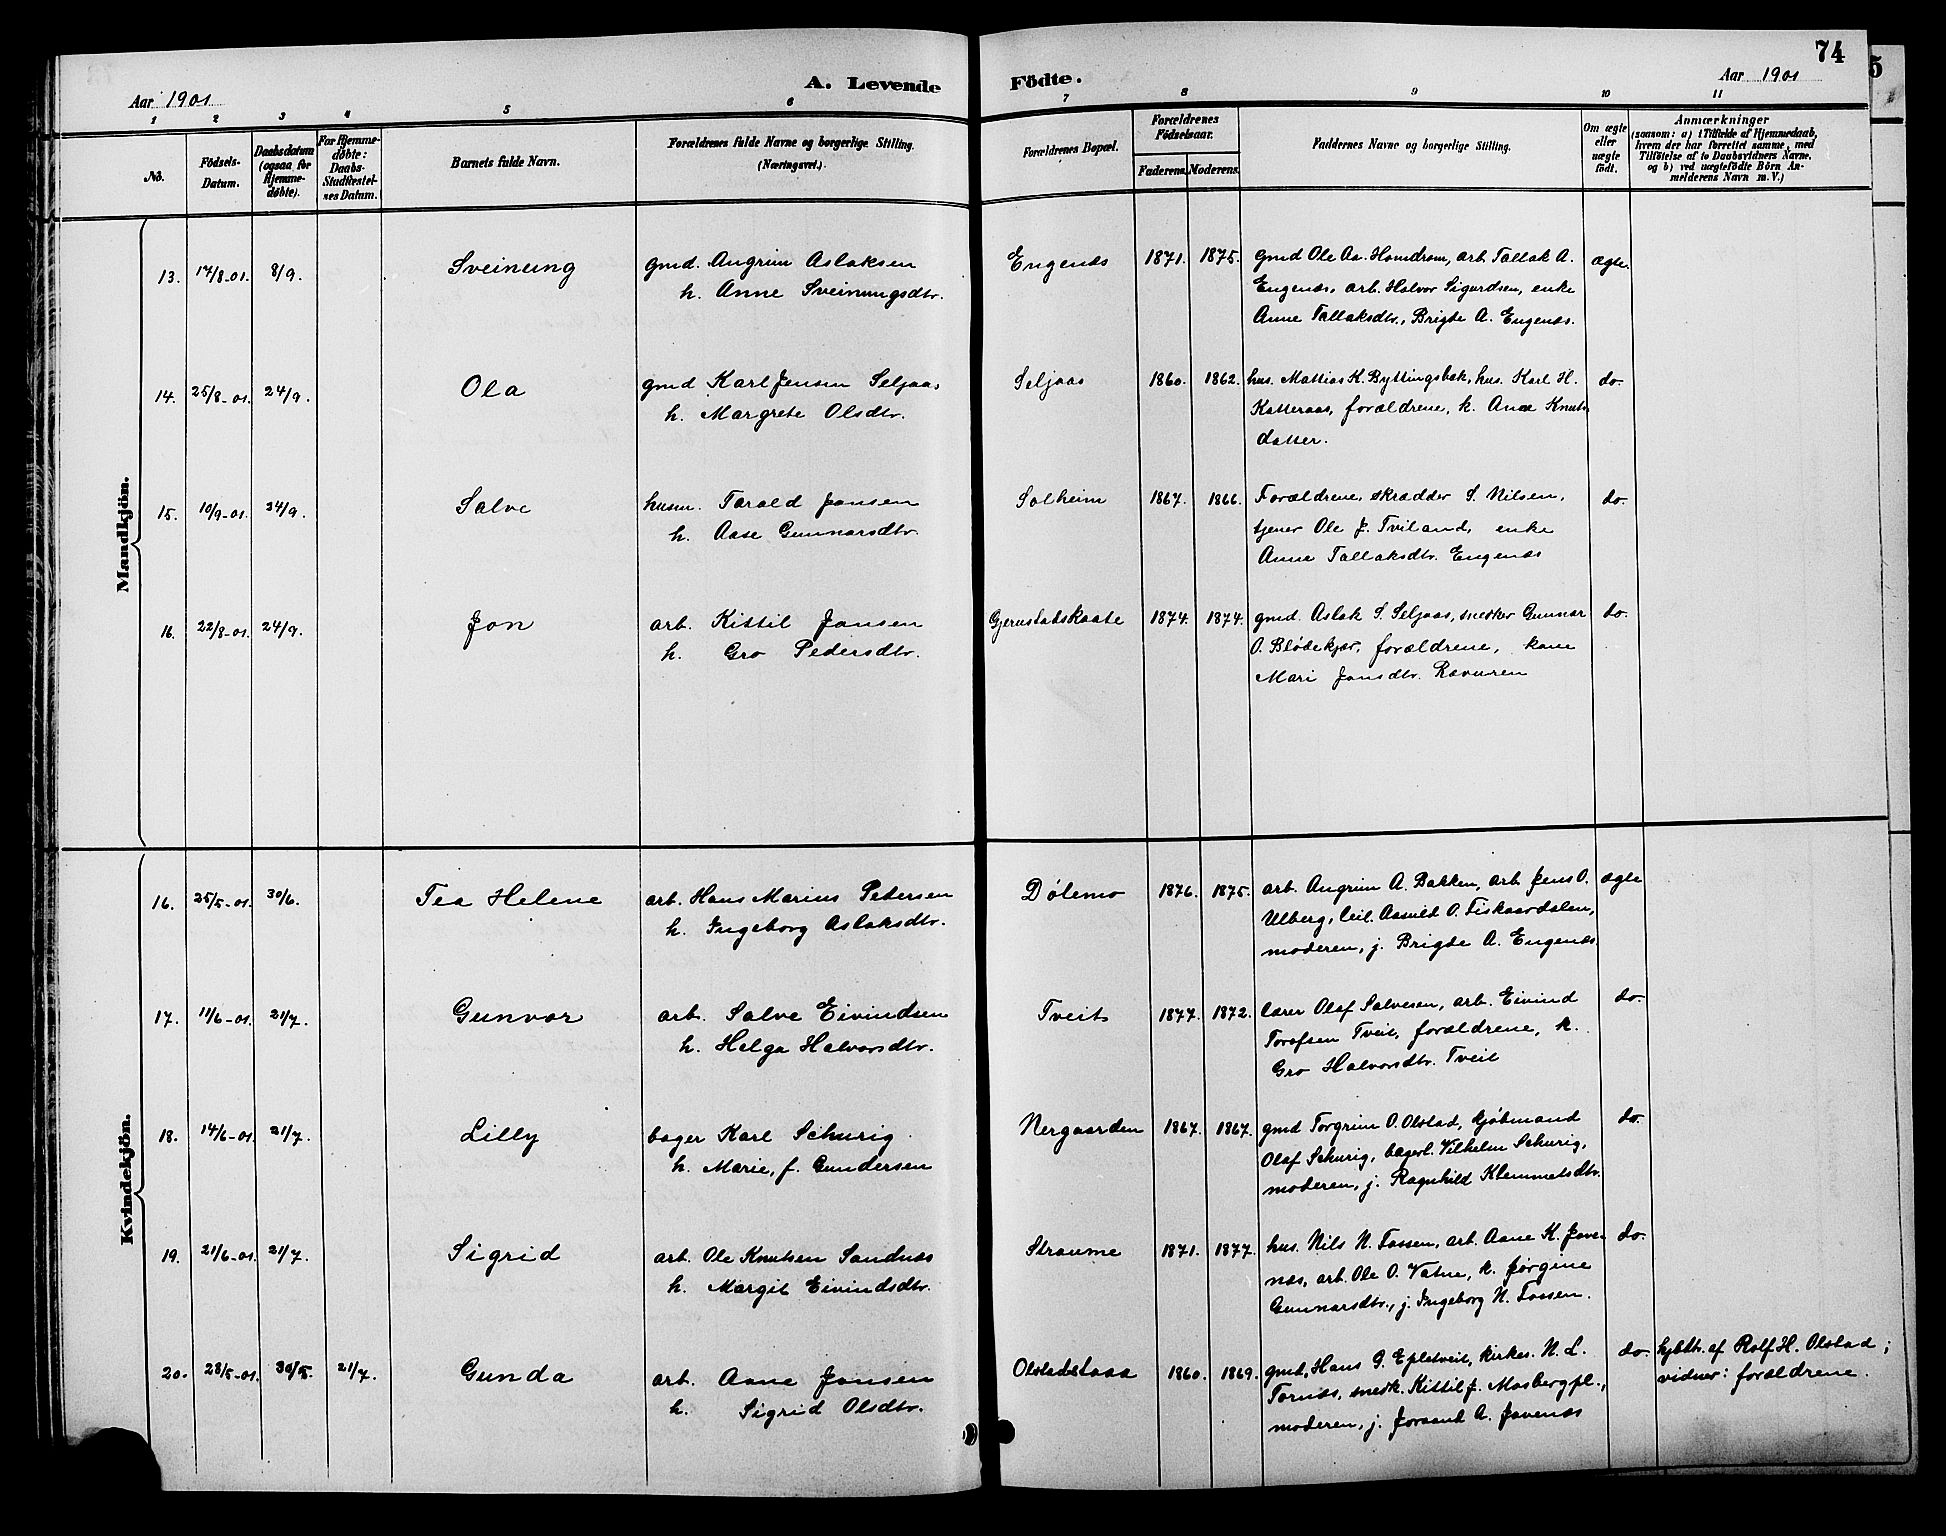 74
5
Aar 1901
A. Levende
Födte.
Aar 1901
1 2 3 4 5 6 7 8 9 10 11
No.
Födsels-
Datum.
Daabsdatum
(ogsaa for
Hjemme-
døbte).
For Hjemme-
døbte:
Daabs-
Stadfæstel-
ses Datum.
Barnets fulde Navn.
Forældrenes fulde Navne og borgerlige Stilling.
(Næringsvei.)
Forældrenes Bopæl.
Forældrenes
Födselsaar.
Faderens.
Moderens.
Faddernes Navne og borgerlige Stilling.
Om ægte
eller
uægte
födt.
Anmærkninger
(saasom: a) i Tilfælde af Hjemmedaab,
hvem der har forrettet samme, med
Tilföielse af to Daabsvidners Navne,
og b) ved uægtefödte Börn An-
melderens Navn m. V.)
Mandkjön.
13. 17/8-01. 8/9. Sveinung gmd. Angrim Aslaksen Engenæs 1871. 1875. gmd Ole Aa. Hamdrom, arb. Tallak A. ægte.
h. Anne Sveinungsdtr. Engenæs, arb. Halvor Sigurdsen, enke
Anne Tallaksdtr., Brigde A. Engenæs.
14. 25/8-01. 24/9. Ola gmd Karl Jensen Seljaas Seljaas 1860. 1862. hus. Mattias K. Byttingsbæk, hus. Karl H. do.
h. Margrete Olsdtr. Katteraas, forældrene, k. Anne Knuts
datter.
15. 10/9-01. 24/9. Salve husm. Tarald Jansen Solheim 1867. 1866. Forældrene, skrædder S. Nilsen, do.
h. Aase Gunnarsdtr. tjener Ole J. Tviland, enke
Anne Tallaksdtr. Engenæs
16. 22/8-01. 24/9. Jon arb. Kittil Jansen Gjerustadskaate 1874. 1874. gmd. Aslak S. Seljaas, snedker Gunnar do.
h. Gro Pedersdtr. O. Blødekjær, forældrene, kone
Mari Jonsdtr. Ravuren
Kvindekjön.
16. 25/5-01. 30/6. Tea Helene arb. Hans Marius Pedersen Dølemo 1876. 1875. arb. Angrim A. Bakken, arb Jens O. ægte
h. Ingeborg Aslaksdtr. Ulberg, leil. Aasuld O. Fiskaardalen,
moderen, j. Brigde A. Engenæs.
17. 11/6-01. 21/7. Gunvor arb. Salve Eivindsen Tveit 1877. 1872. lærer Olaf Salvesen, arb. Eivind do.
h. Helga Halvorsdtr. Torefsen Tveit, forældrene, k.
Gro Halvorsdtr. Tveit
18. 14/6-01. 21/7. Lilly bager Karl Schurig Nergaarden 1867. 1867. gmd Torgrim O. Olstad, kjøbmand do.
h. Marie, f. Gundersen Olaf Schurig, bagerl. Vilhelm Schurig,
moderen, j. Ragnhild Klemmetsdtr.
19. 21/6-01. 21/7. Sigrid arb. Ole Knutsen Sandnæs Straume 1871. 1877. hus. Nils N. Fossen, arb. Aane K. Jave- do.
h. Margit Eivindsdtr. næs, arb. Ole O. Vatne, k. Jørgine
Gunnarsdtr., j. Ingeborg N. Fossen.
20. 28/5-01. 30/5. 21/7. Gunda arb. Aane Jansen Olstadstaaa 1860. 1869. gmd. Hans G. Epletveit, kirkes. N. L. do. hjdth. af Rolf H. Olstad;
h. Sigrid Olsdtr. Tornæs, snedk. Kittil J. Mosbergpl., vidner: forældrene.
moderen, j. Joraand A. Javenæs